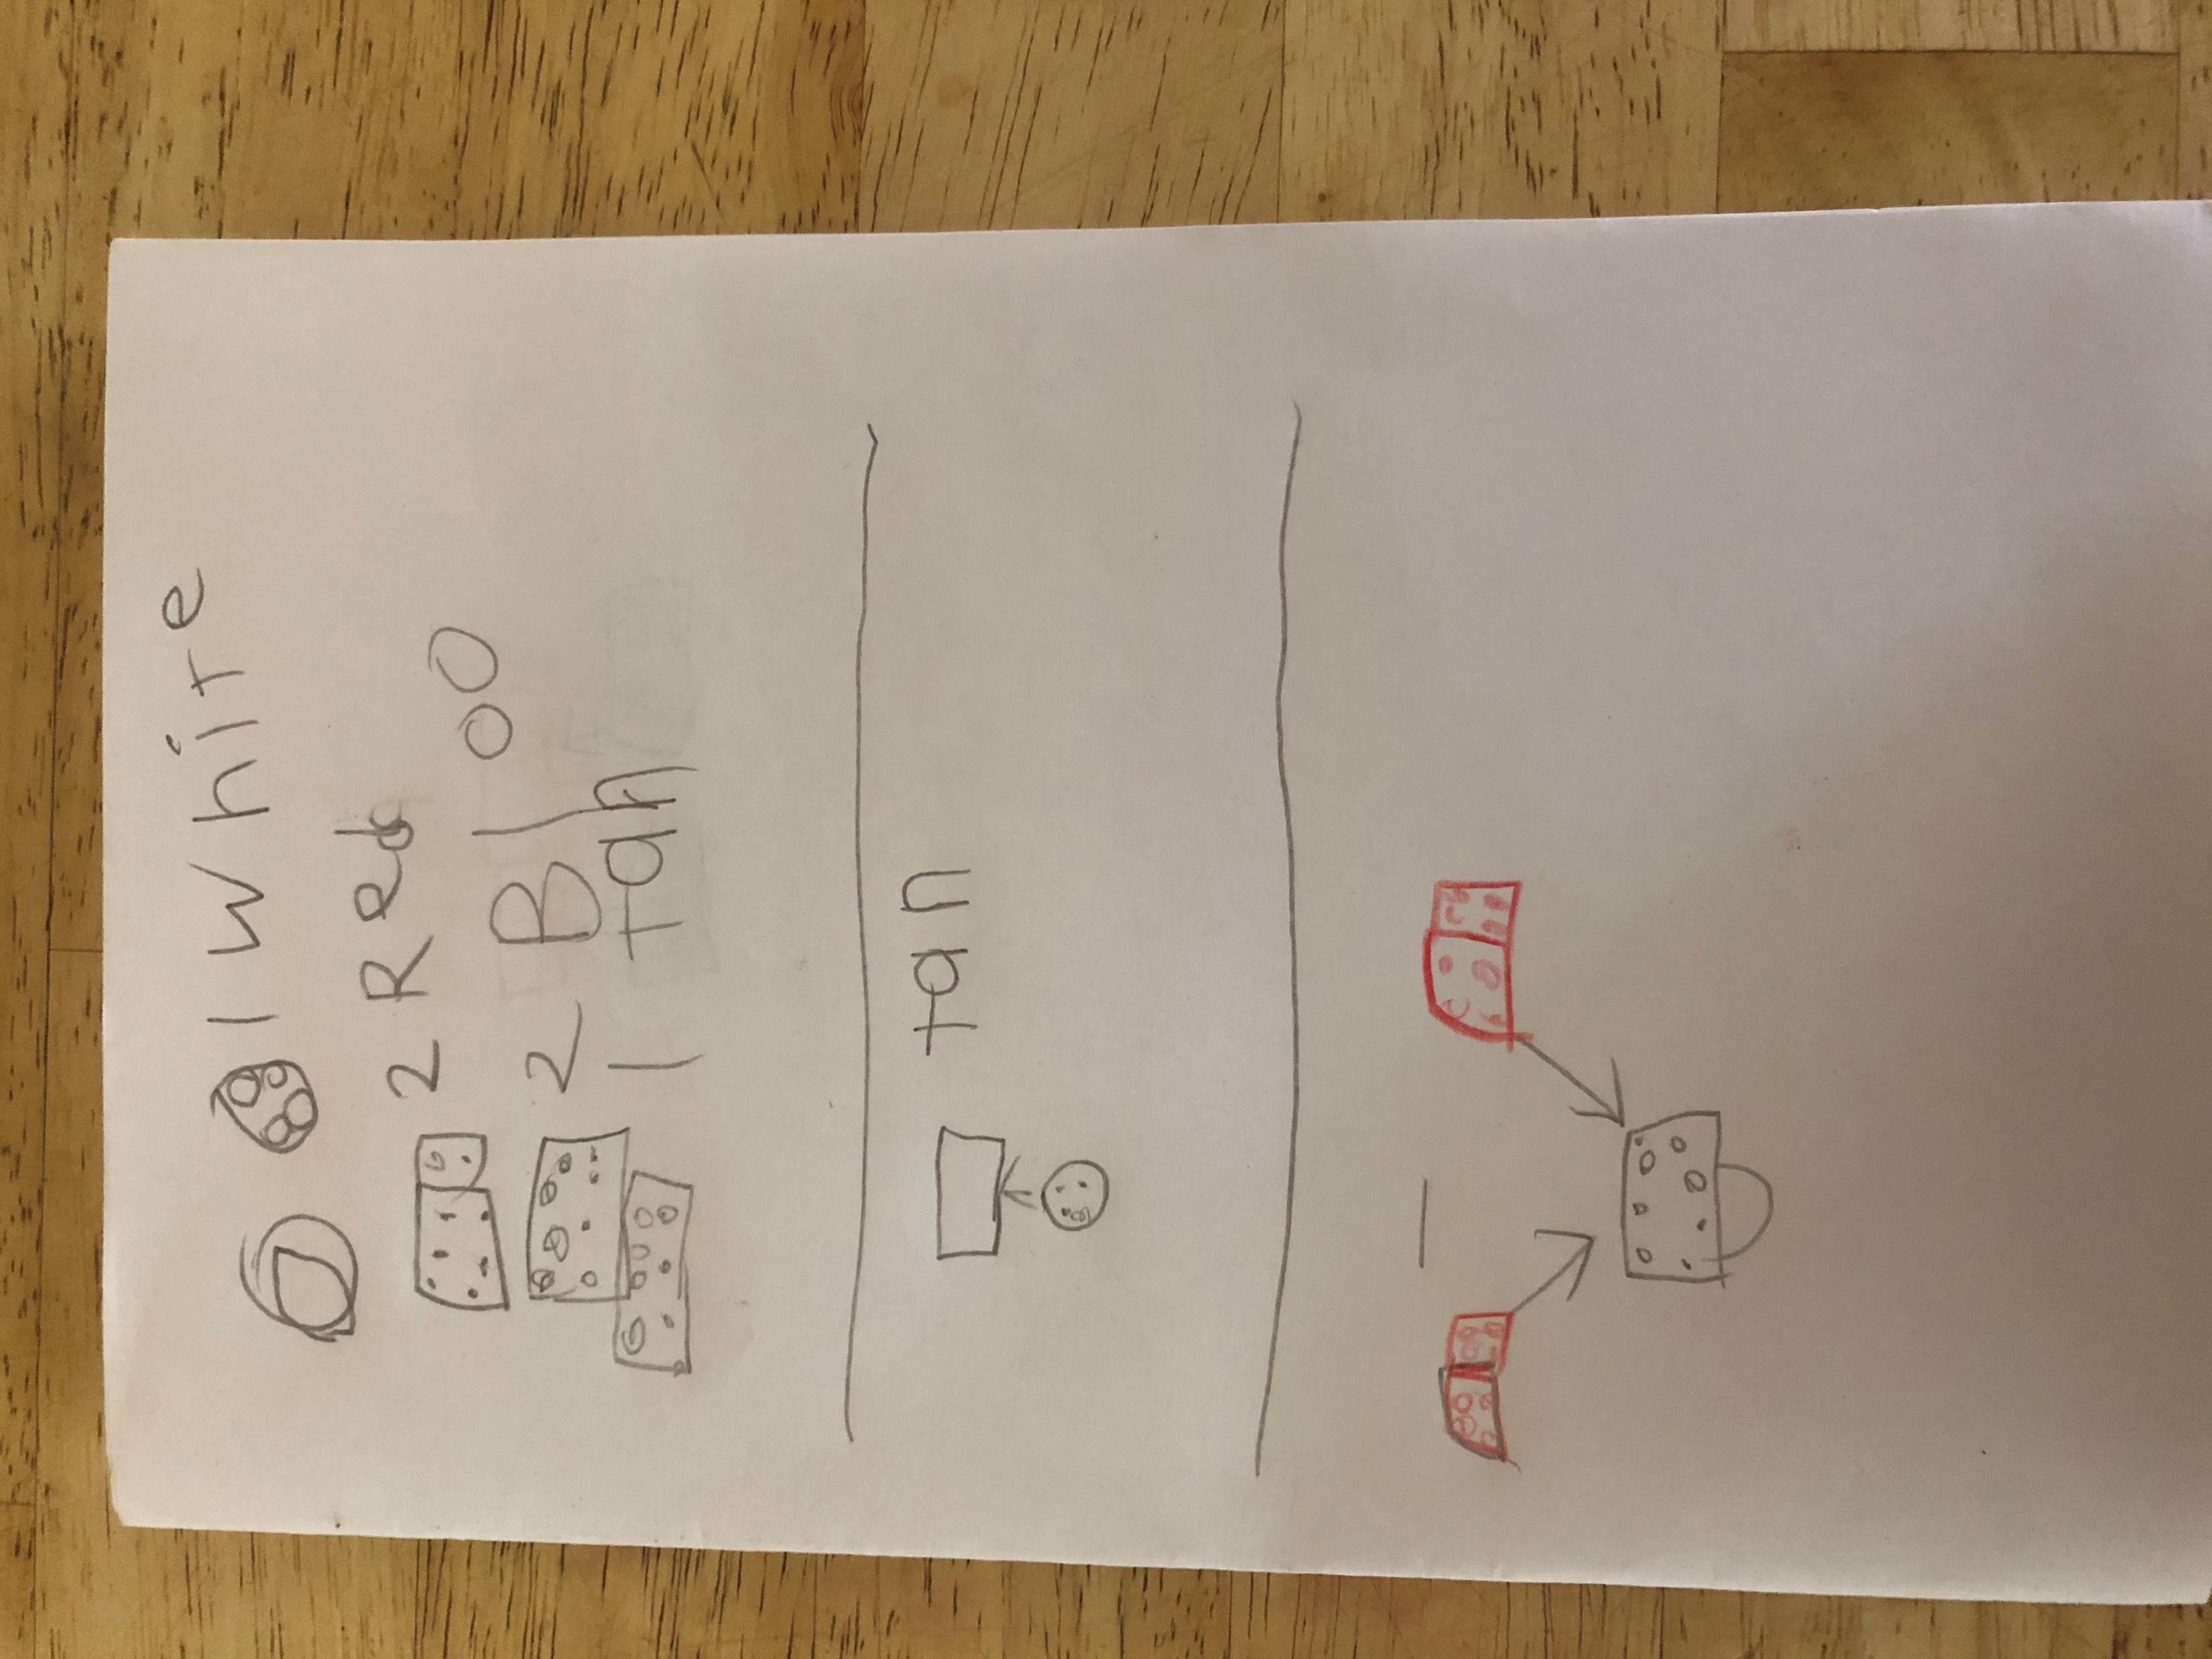 1 white
2 Red
2 Bloo
1 tan
tan